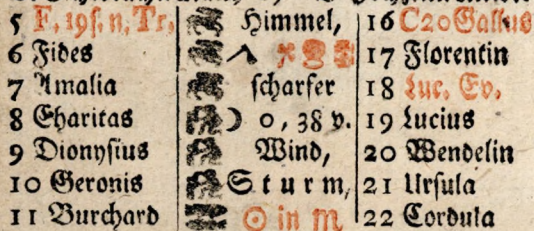 5 F. 19 s. n. Tr. Himmel, 16 C 20 Gallus
6 Fides 17 Florentin
7 Amalia scharfer 18 Luc. Ev.
8 Charitas ☽ 0, 38 v. 19 Lucius
9 Dionysius Wind, 20 Wendelin
10 Geronis Sturm, 21 Ursula
11 Burchard ☉ in ♏ 22 Cordula